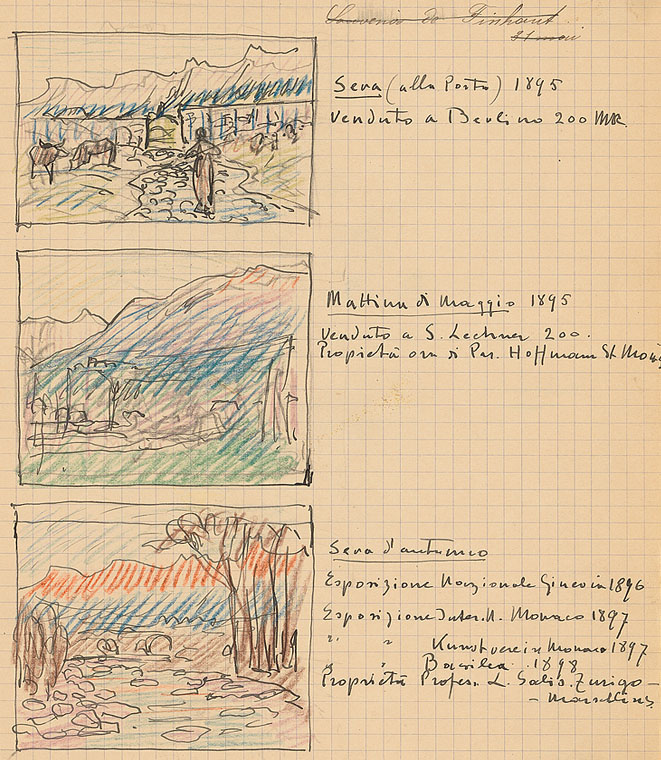 Souvenir de Finhaut
31 mai
Sera (alla Porta) 1895
Venduto a Berlino 200 MK.
Mattina di Maggio 1895
Venduto a S. Lechner 200.
Propietà ora di Par. Hoffmann St. Mori
Sera d'autunno
Esposizione Nazionale Ginevra 1896
Esposizione Inter.N. Monaco 1897
" " Kunstverein Monaco 1897
" " Basilea 1898
Proprietà Profess. L. Salis. Zurigo -